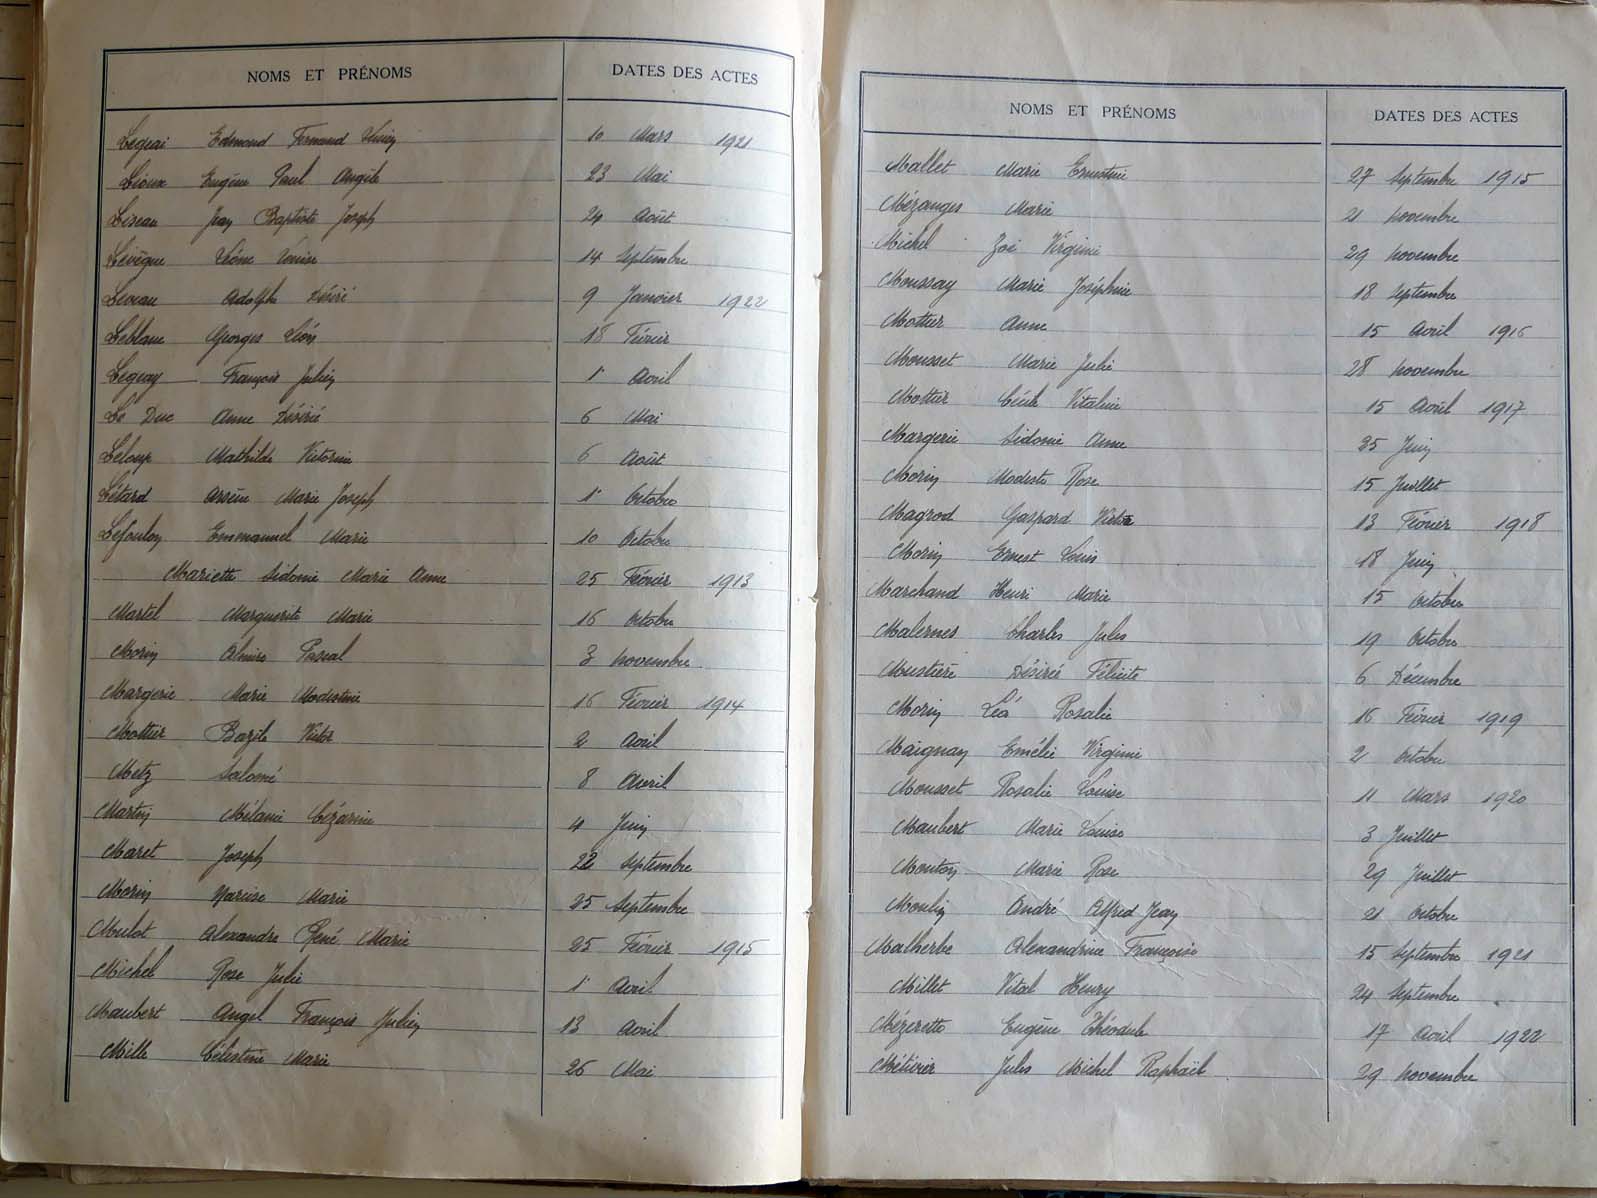 NOMS ET PRÉNOMS DATES DES ACTES
Legeai Edmond Fernand 10 Mars 1921
Lioux Eugène Paul Angèle 23 Mai
Liseau Jean Baptiste Joseph 24 Août
Lévêque Louise 14 Septembre
Adolphe Désiré 9 Janvier 1922
Leblanc Georges Léon 18 Février
Leguay François Julien 1er Avril
Le Duc Anne Désirée 6 Mai
Leloup Mathilde Victorine 6 Août
Létard Arsène Marie Joseph 1er Octobre
Lefoulon Emmanuel Marie 10 Octobre
Mariette Sidonie Marie Anne 25 Février 1913
Martel Marguerite Marie 16 Octobre
Morin Pascal 3 Novembre
Margerie Marie Modestine 16 Février 1914
Mottier Bazile Victor 2 Avril
Metz Salomé 8 Avril
Martin Mélanie Cézarine 4 Juin
Maret Joseph 22 Septembre
Morin Narcisse Marie 25 Septembre
Mulot Alexandre René Marie 25 Février 1915
Michel Rose Julie 1er Avril
Maubert Angel François Julien 13 Avril
Mille Célestine Marie 26 Mai
NOMS ET PRÉNOMS DATES DES ACTES
Mallet Marie Ernestine 27 Septembre 1915
Mézanges Marie 21 Novembre
Michel Zoé Virginie 29 Novembre
Moussay Marie Joséphine 18 Septembre
Mottier Anne 15 Avril 1916
Mousset Marie Julie 28 Novembre
Mottier Cécile Vitaline 15 Avril 1917
Margerie Sidonie Anne 25 Juin
Morin Modeste Rose 15 Juillet
Magrod Gaspard Victor 13 Février 1918
Morin Ernest Louis 18 Juin
Marchand Henri Marie 15 Octobre
Malernes Charles Jules 19 Octobre
Mustière Désirée Félicité 6 Décembre
Morin Léa Rosalie 16 Février 1919
Maignan Emélie Virginie 2 Octobre
Mousset Rosalie Louise 11 Mars 1920
Maubert Marie Louise 3 Juillet
Mouton Marie Rose 29 Juillet
Moulin André Alfred Jean 21 Octobre
Malherbe Alexandrine Françoise 15 Septembre 1921
Millet Vital Henry 24 Septembre
Mézerette Eugène Théodule 17 Avril 1922
Métivier Jules Michel Raphaël 29 Novembre